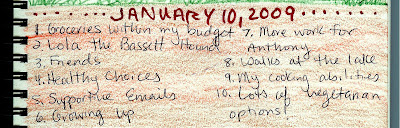 JANUARY 10, 2009
1. Groceries within my budget
2. Lola the Bassett Hound
3. Friends
4. Healthy Choices
5. Supportive Emails
6. Growing up
7. More work for
Anthony
8. Walks at the lake
9. My cooking abilities
10. Lots of vegetarian
options!